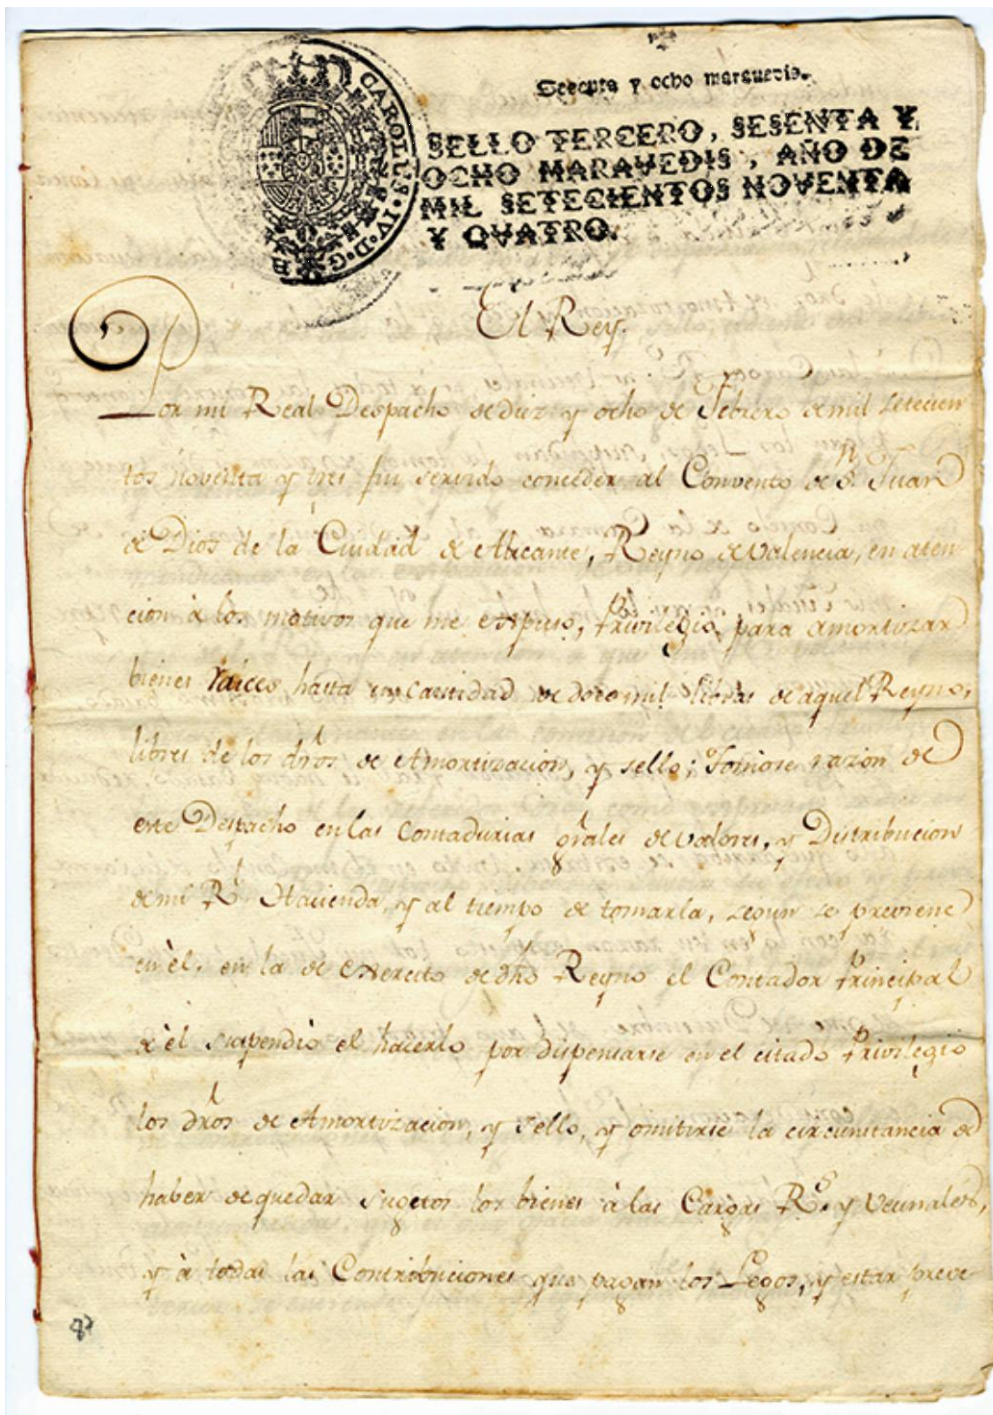 Sesenta y ocho maravedis.
CAROLUS · IV · D · G
SELLO TERCERO, SESENTA Y
OCHO MARAVEDIS, AÑO DE
MIL SETECIENTOS NOVENTA
Y QVATRO.
El Rey.
Por mi Real Despacho de diez y ocho de Febrero de mil setecien
tos noventa y tres fui servido conceder al Convento de Sn. Juan
de Dios de la Ciudad de Alicante, Reyno de Valencia, en aten-
cion à los motivos que me expuso, Privilegio para amortizar
bienes raices hasta en cantidad de doce mil libras de aquel Reyno,
libres de los dros de Amortizacion, y sello; Tomose razon de
este Despacho en las Contadurias grales de valores, y Distribucion
de mi Rl. Hacienda, y al tiempo de tomarla, segun se previene
en èl, en la de Exercito de dho Reyno el Contador Principal
de èl suspendiò el hacerlo por dispensarse en el citado Privilegio
los dros de Amortizacion, y sello, y omitirse la circunstancia de
haber de quedar sugetos los bienes à las Cargas Rs. y Vecinales,
y à todas las Contribuciones que pagan los Legos, y estar preve